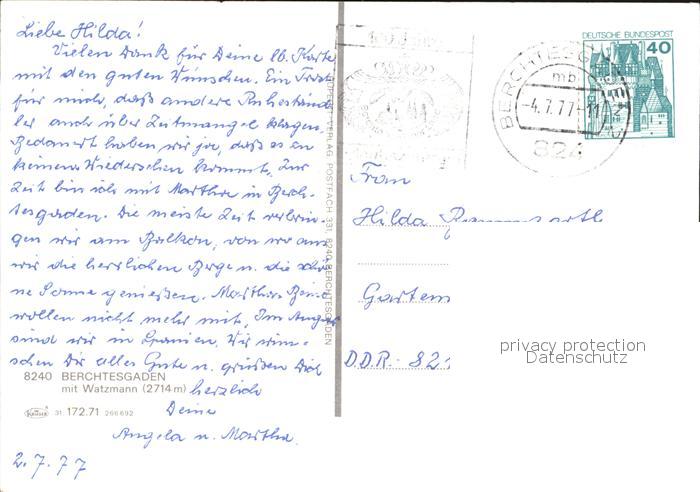 Liebe Hilda!
Vielen Dank für Deine lb. Karte
mit den guten Wünschen. Ein Trost
für mich, daß andere Ruheständ-
ler auch über Zeitmangel klagen.
Bedauert haben wir ja, daß es zu
keinem Wiedersehen kommt. Zur
Zeit bin ich mit Martha in Berch-
tesgaden. Die meiste Zeit verbrin-
gen wir am Balkon, von wo aus
wir die herrlichen Berge u. die schö-
ne Sonne genießen. Marthas Beine
wollen nicht mehr mit. Im August
sind wir in Spanien. Wir wün-
schen Dir alles Gute u. grüßen Dich
herzlich
Deine
Angela u. Martha.
2.7.77
8240 BERCHTESGADEN
mit Watzmann (2714m)
31. 172.71 266 692
VERLAG POSTFACH 331, 8240 BERCHTESGADEN
DEUTSCHE BUNDESPOST
40
BERCHTESG
mb
-4.7.77-11
824
Frau
Hilda
Garten
DDR-82
privacy protection
Datenschutz